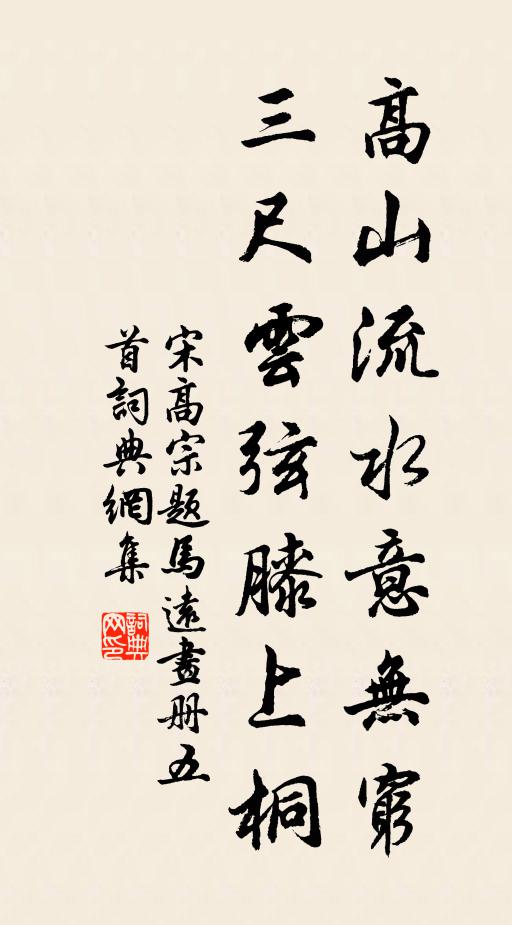 高山流水意無窮
三尺雲弦膝上桐
宋高宗题馬遠畫册五
首詞典網集
詞典
网印